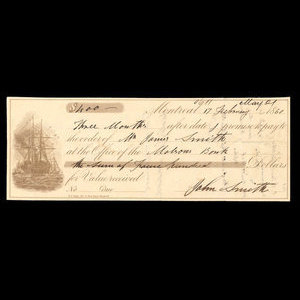 $400 —
May 21
Montreal 17 February 1860
Three Months after date I promise to pay to
the order of Mr James Smith
at the Office of the Molsons Bank
the sum of four hundred Dollars
for Value received
No Due
John Smith